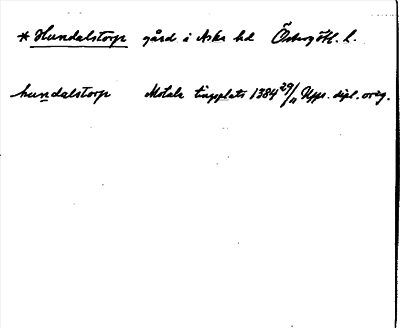 * Hundalstorp gård i Aska hd Östergötl. l.
hundalstorp Motala tingplats 1384 29/11 Upps. dipl. oreg.